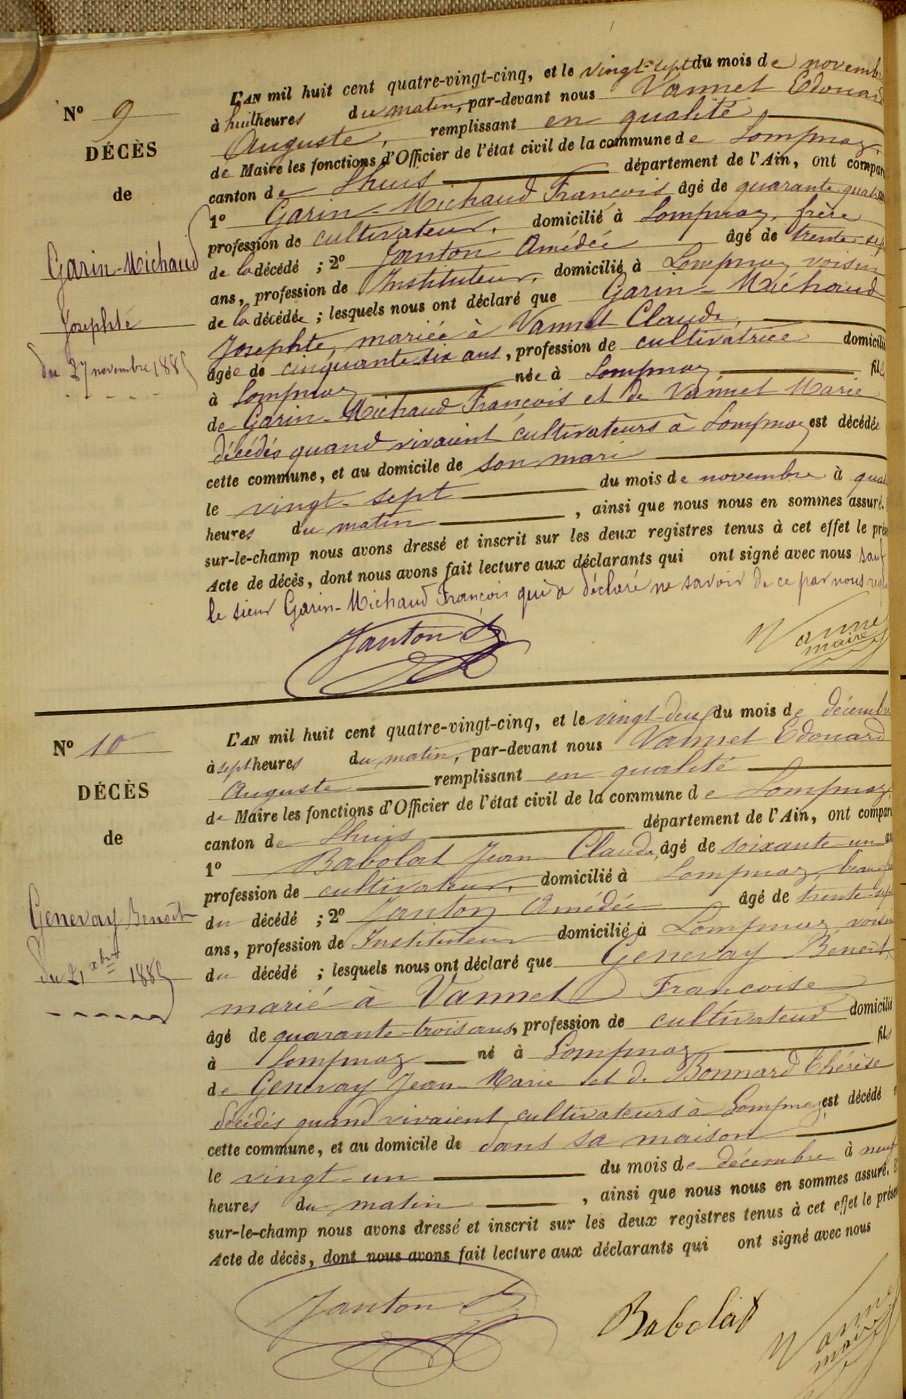 N° 9
DÉCÈS
de
Garin-Michaud
Josephte
du 27 novembre 1885
L'AN mil huit cent quatre-vingt-cinq, et le vingt-sept du mois de novembre
à huit heures du matin, par-devant nous Vannet Edouard
Auguste, remplissant en qualité
de Maire les fonctions d'Officier de l'état civil de la commune de Lompnaz,
canton de Lhuis département de l'Ain, ont comparu
1° Garin-Michaud François âgé de quarante quatre
profession de cultivateur, domicilié à Lompnaz, frère
de la décédé ; 2° Janton Amédée âgé de trente-sept
ans, profession de Instituteur, domicilié à Lompnaz voisin
de la décédée ; lesquels nous ont déclaré que Garin-Michaud
Josephte, mariée à Vannet Claude,
âgée de cinquante six ans, profession de cultivatrice domicilié
à Lompnaz née à Lompnaz fille
de Garin-Michaud François et de Vannet Marie
décédés quand vivaient cultivateurs à Lompnaz est décédée
cette commune, et au domicile de son mari
le vingt-sept du mois de novembre à quatre
heures du matin, ainsi que nous nous en sommes assuré.
sur-le-champ nous avons dressé et inscrit sur les deux registres tenus à cet effet le présent
Acte de décès, dont nous avons fait lecture aux déclarants qui ont signé avec nous sauf
le sieur Garin-Michaud François qui a déclaré ne savoir de ce par nous
Janton
Vannet
maire
N° 10
DÉCÈS
de
Genevay Benoît
du 21 xbre 1885
L'AN mil huit cent quatre-vingt-cinq, et le vingt-deux du mois de décembre
à sept heures du matin, par-devant nous Vannet Edouard
Auguste remplissant en qualité
de Maire les fonctions d'Officier de l'état civil de la commune de Lompnaz,
canton de Lhuis département de l'Ain, ont comparu
1° Babolat Jean Claude, âgé de soixante-un
profession de cultivateur, domicilié à Lompnaz,
du décédé ; 2° Janton Amédée âgé de trente-sept
ans, profession de Instituteur domicilié à Lompnaz, voisin
du décédé ; lesquels nous ont déclaré que Genevay Benoît,
marié à Vannet Françoise
âgé de quarante-trois ans, profession de cultivateur domicilié
à Lompnaz né à Lompnaz fils
de Genevay Jean-Marie et de Bonnard Thérèse
décédés quand vivaient cultivateurs à Lompnaz est décédé
cette commune, et au domicile de dans sa maison
le vingt-un du mois de décembre à neuf
heures du matin, ainsi que nous nous en sommes assuré.
sur-le-champ nous avons dressé et inscrit sur les deux registres tenus à cet effet le présent
Acte de décès, dont nous avons fait lecture aux déclarants qui ont signé avec nous
Janton
Babolat
Vannet
maire